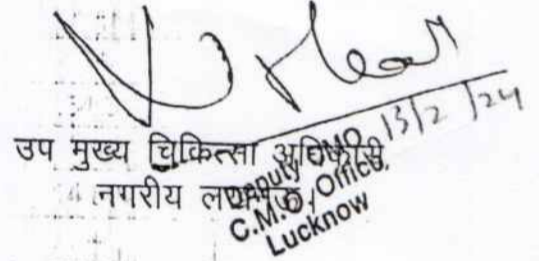 13/2/24
उप मुख्य चिकित्सा अधिकारी
नगरीय लखनऊ।
Deputy CMO
C.M.O. Office.
Lucknow